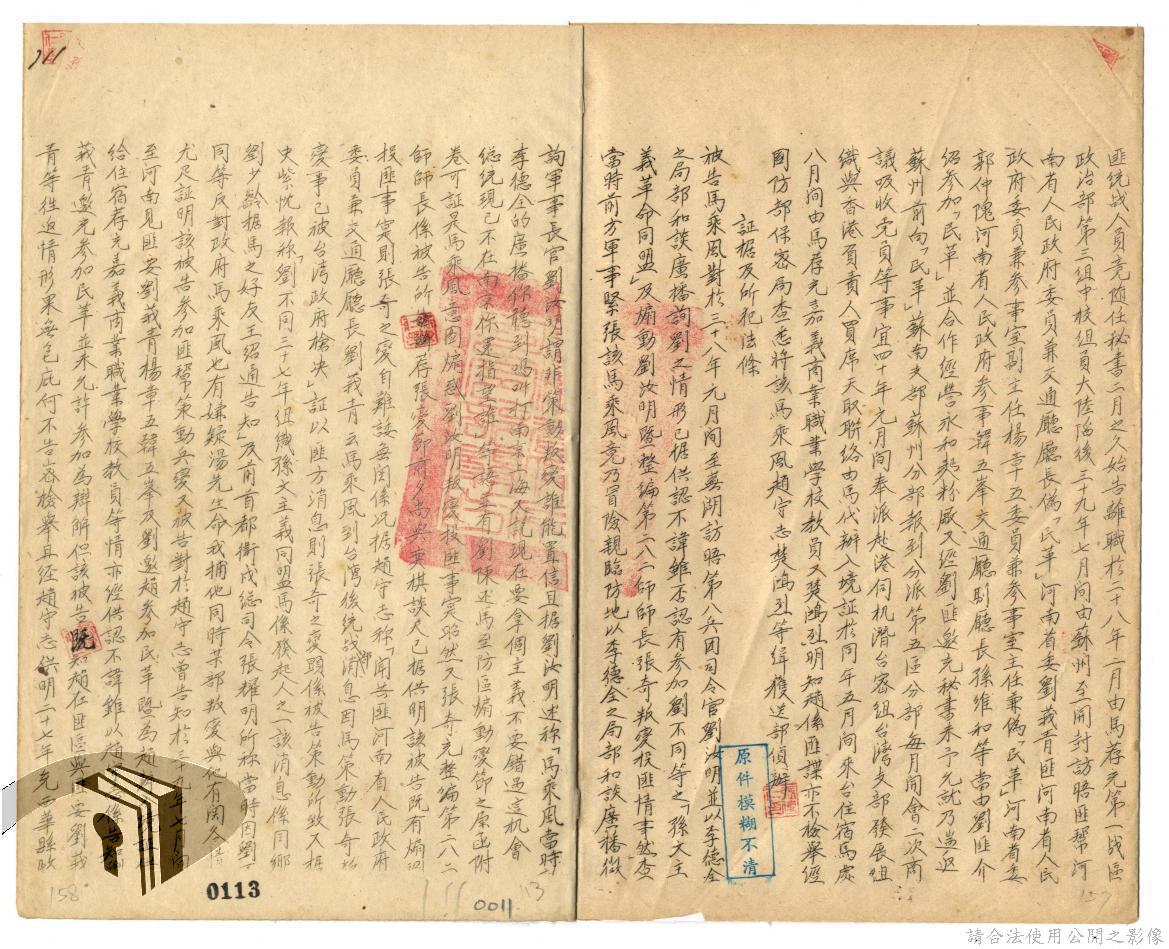 匪統战人員竟随任秘書一月之久始告離職於二十八年二月由馬荐充第一战區
政治部第三组中校组員大陸陷後三十九年七月间由蘇州至開封訪晤匪幫河
南省人民政府委員兼交通廳廳長偽「民革」河南省委劉莪青匪河南省人民
政府委員兼参事室副主任楊章五委員兼参事室主任兼偽「民革」河南省委
郭仲隗河南省人民政府参事韓五峯交通廳副廳長孫維和等當由劉匪介
绍参加「民革」並合作經营永和麪粉厰又經劉匪邀充秘書未予允就乃遄返
蘇州前向「民革」蘇南支部蘇州分部報到分派第五區分部每月開會二次商
議吸收党員等事宜四十年元月间奉派赴港伺机潛台密组台湾支部發展组
織與香港負責人買席天取聯络由馬代辦入境証於同年五月间來台住宿馬處
八月间由馬荐充嘉義商業職業学校教員又樊鴻烈明知趙係匪諜亦不檢舉經
國防部保密局查悉將該馬乘風趙守志樊鴻烈等缉獲送部偵辦
証据及所犯法條
被告馬乘風對於三十八年元月间至蕪湖訪晤第八兵团司令官劉汝明並以李德全
之局部和談廣播詢劉之情形已据供認不諱雖否認有参加劉不同等之「孫文主
義革命同盟」及煽動劉汝明暨整编第二八二師師長張奇叛变投匪情事然查
當時前方軍事緊張該馬乘風竟乃冒险親臨防地以李德全之局部和談廣播徵
原件模糊不清
157
詢軍事長官劉汝明謂非策動叛变誰能置信且据劉汝明述称「馬乘風當時
李德全的廣播你聽到嗎叫打南京上海大乱現在要拿個主義不要錯过這机會
總统現已不在南京你還指望誰」等語並有劉陳述馬至防區煽動变節之原函附
卷可証是馬乘風意图煽惑劉汝明叛变投匪事实昭然又張奇充整编第二八二
師師長係被告所荐張变節前夕尚與奕棋談天已据供明該被告既有煽
投匪事实則張奇之变自難諉毎関係况据趙守志称「聞苦匪河南省人民政府
委員兼交通廳廳長劉莪青云馬乘風到台灣後统战消息因馬策動張奇
变事已被台湾政府槍决」証以匪方消息則張奇之变顯係被告策動所致又据
史紫忱報称「劉不同三十七年组織孫文主義同盟馬係發起人之一該消息係同鄉
劉少齡据馬之好友王绍通告知」及前首都衛戍總司令張耀明所称當時因劉
同等反對政府馬乘風也有嫌疑湯先生命我捕他同時某部叛变與他有関久
尤足証明該被告参加匪幫策動兵变又被告對於趙守志曾告知於三十九年七月间
至河南見匪要劉莪青楊章五韓五峯及劉邀趙参加民革暨為趙
給住宿荐充嘉義商業職業学校教員等情亦經供認不諱雖以趙 係告
莪青邀充参加民革並未允許参加為辯解但該被告既知趙在匪區與匪要劉莪
青等往返情形果無包庇何不告密檢舉且經趙守志供明二十七年充西華縣政
0113
158
0011
13
請合法使用公開之影像